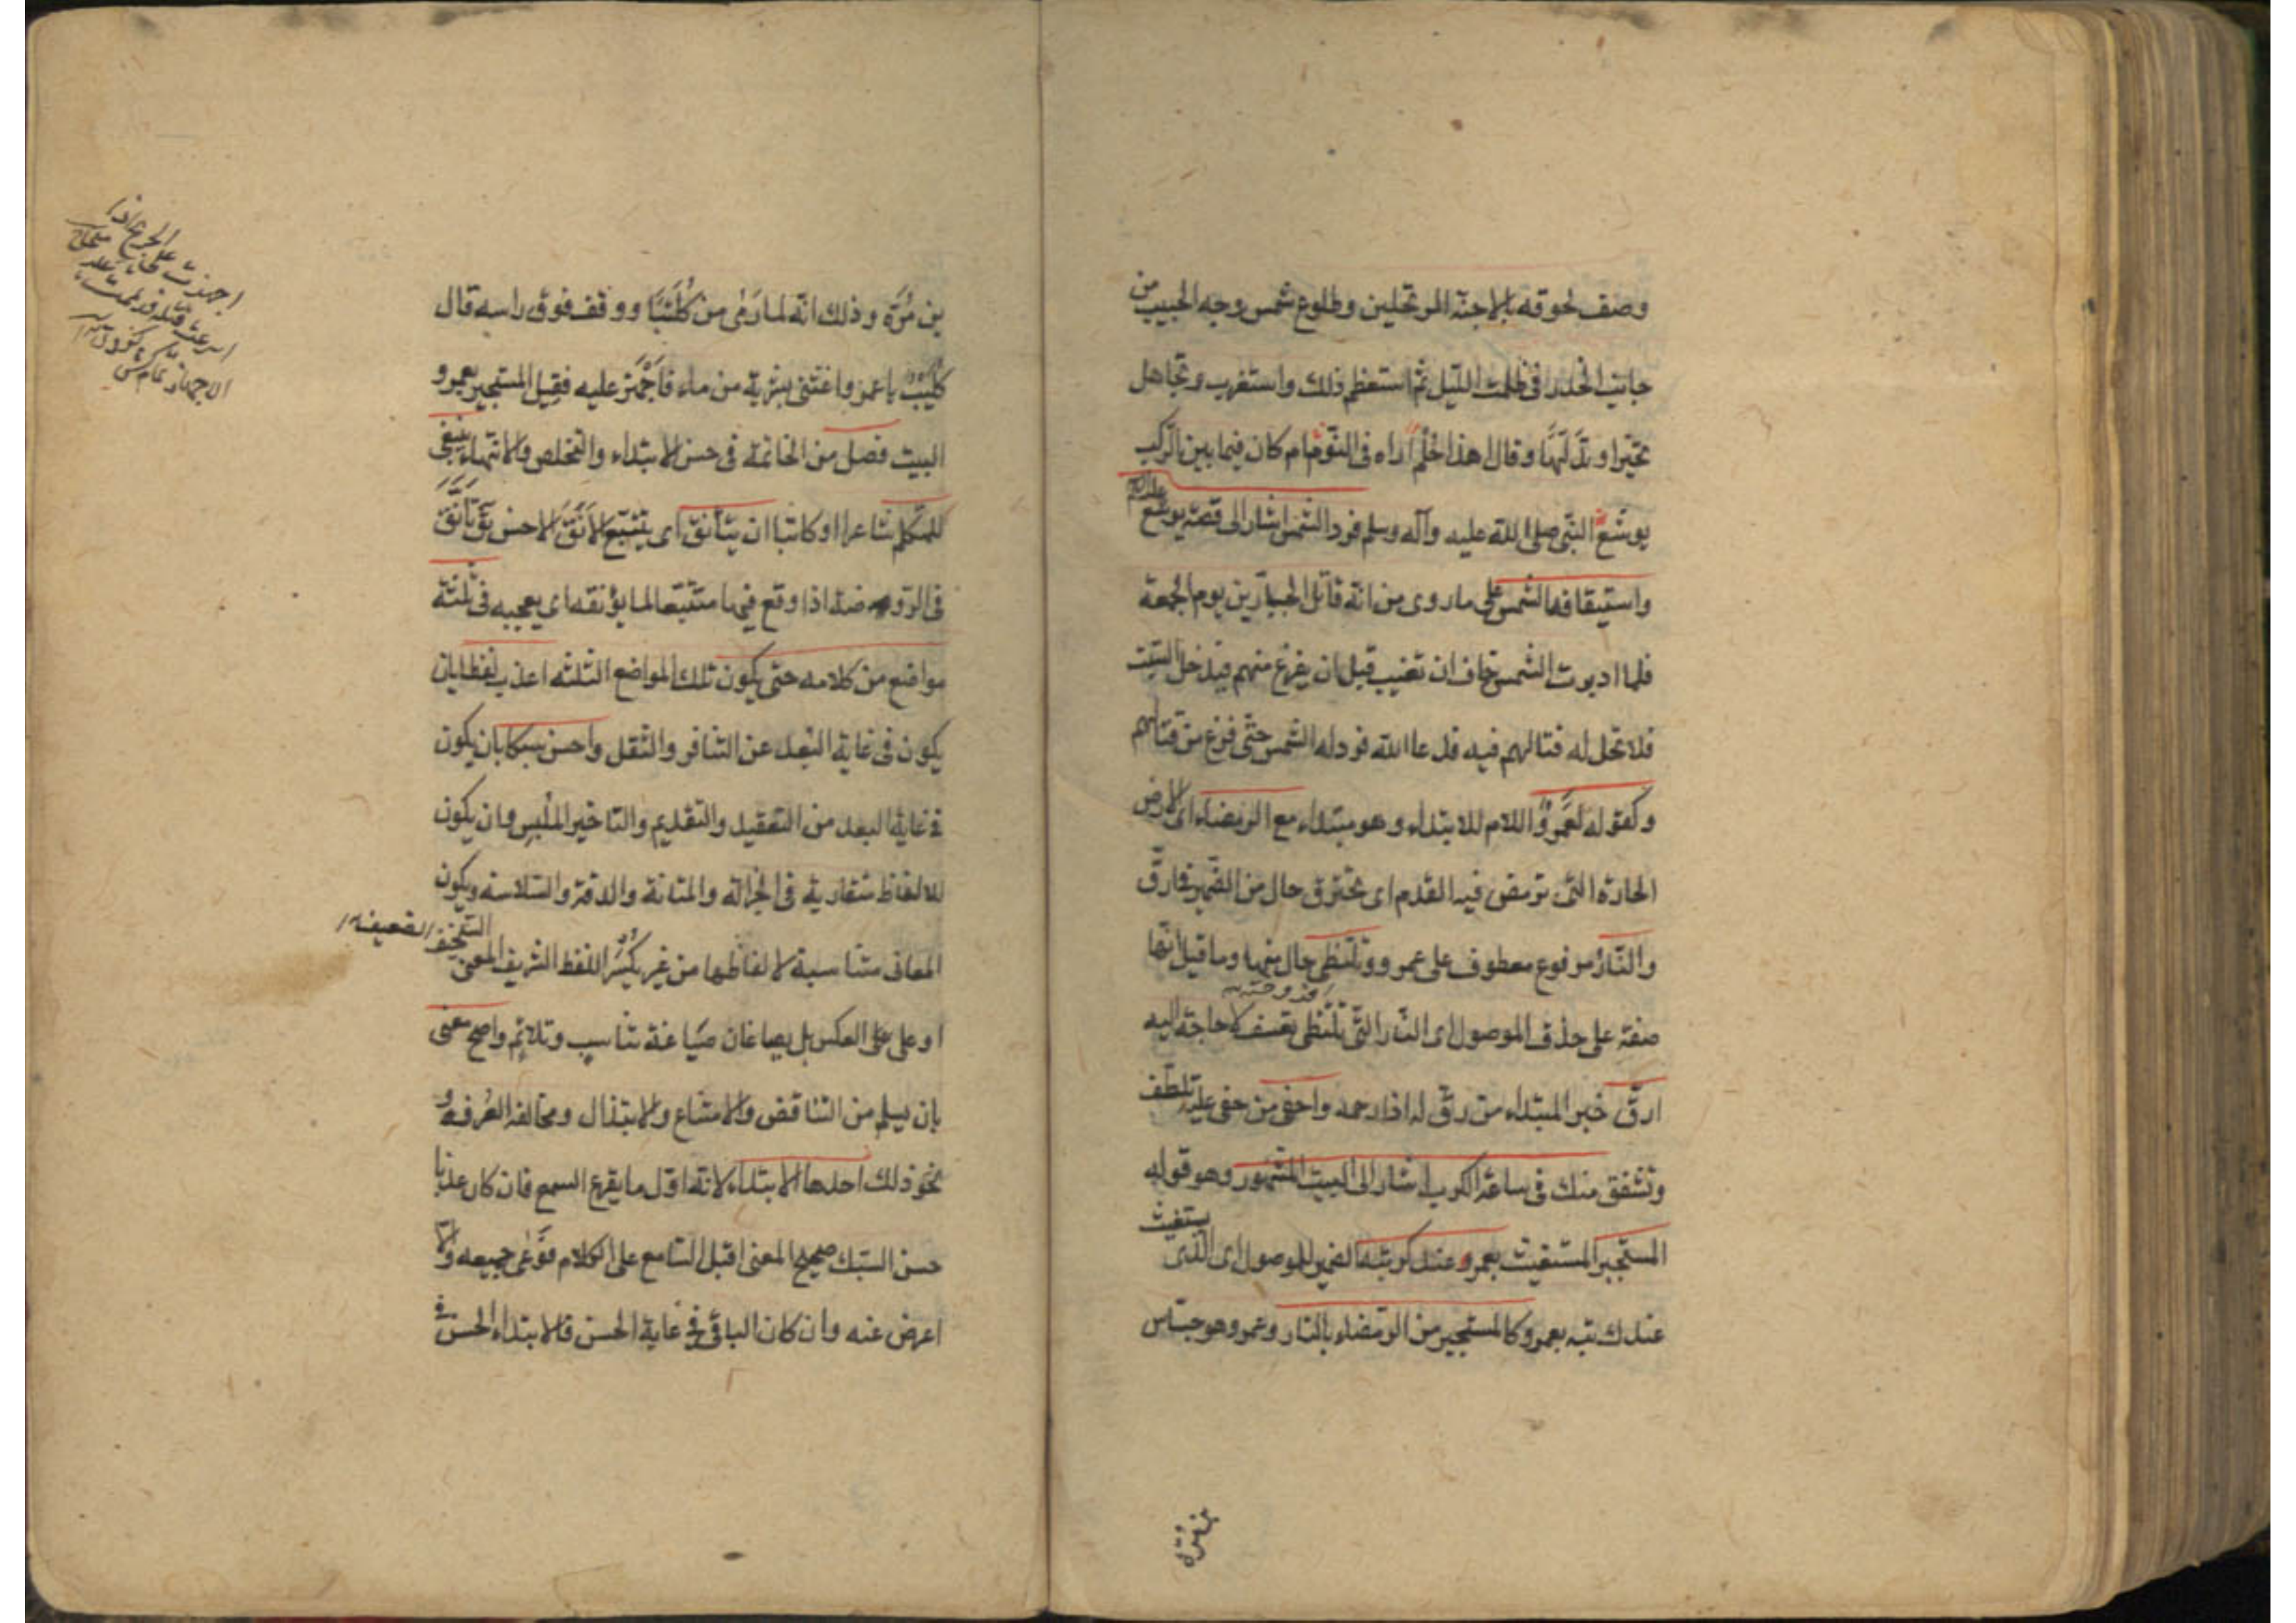 وصف لحوقه بالاحبة المرتحلين وطلوع شمس وجه الحبيب من
جانب الخدر في ظلمت الليل ثم استعظم ذلك واستغرب وتجاهل
تحيرا وتدلها وقال اهذا حُلْم اراه في النوم ام كان فيما بين الركب
يوشع النبي صلى الله عليه وآله وسلم فرد الشمس اشار الى قصة يوشع عليه السلام
واستيقافه الشمس على ما روى من انه قاتل الجبارين يوم الجمعة
فلما ادبرت الشمس خاف ان تغيب قبل ان يفرغ منهم فيدخل السبت
فلا تحل له قتالهم فيه فدعا الله فرد له الشمس حتى فرغ من قتالهم
وكقوله لَعَمْروٌ اللام للابتداء وهو مبتداء مع الرمضاء اى الارض
الحارة التى ترمض فيه القدم اى تحترق حال من الضمير فى ارقّ
والنارُ مرفوع معطوف على عمرو وتلتظى حال منها وما قيل انها
صفة على حذف الموصول اى النار التى تلتظى تعسف لا حاجة اليه
ارقّ خبر المبتداء من رقّ له اذا رحمه واحفى من حفى عليه تلطف
وتشفق منك فى ساعة الكرب اشار الى البيت المشهور وهو قوله
المستجير المستغيث بعمرو عند كربته الضمير للموصول اى الذى يستغيث
عند كربته بعمرو كالمستجير من الرمضاء بالنار وعمرو هو جساس
بن مُرّة وذلك انه لما رَمٰى من كُلَيْبًا ووقف فوق راسه قال
كليب يا عمرو اغثنى بشربة من ماء فاَجْهَزَ عليه فقيل المستجير بعمرو
البيت فصل من الخاتمة فى حسن الابتداء والتخلص والانتهاء ينبغى
للمتكلم شاعرا او كاتبا ان يتأنق اى يتتبع الاَنَق الاحسن يق تَأَنَّقَ
فى الروضة اذا وقع فيها متتبعا لما يؤنقه اى يعجبه فى ثلثة
مواضع من كلامه حتى يكون تلك المواضع الثلثه اعذب لفظا بان
يكون فى غاية البعد عن التنافر والثقل واحسن سبكا بان يكون
فى غاية البعد من التعقيد والتقديم والتاخير الملبس وان يكون
للالفاظ متقاربة فى الجزالة والمتانة والدقة والسلاسة ويكون
المعانى متناسبة لالفاظها من غير ان يكسى اللفظ الشريف المعنى السخيف
او على على العكس بل يصاغان صياغة تناسب وتلائم واصح معنى
بان يسلم من التناقض والامتناع والابتذال ومخالفة العرف و
نحو ذلك احدها الابتداء لانه اول ما يقرع السمع فان كان عذبا
حسن السبك صحيح المعنى اقبل السامع على الكلام فوعى جميعه والا
اعرض عنه وان كان الباقى فى غاية الحسن فالابتداء الحسن فى